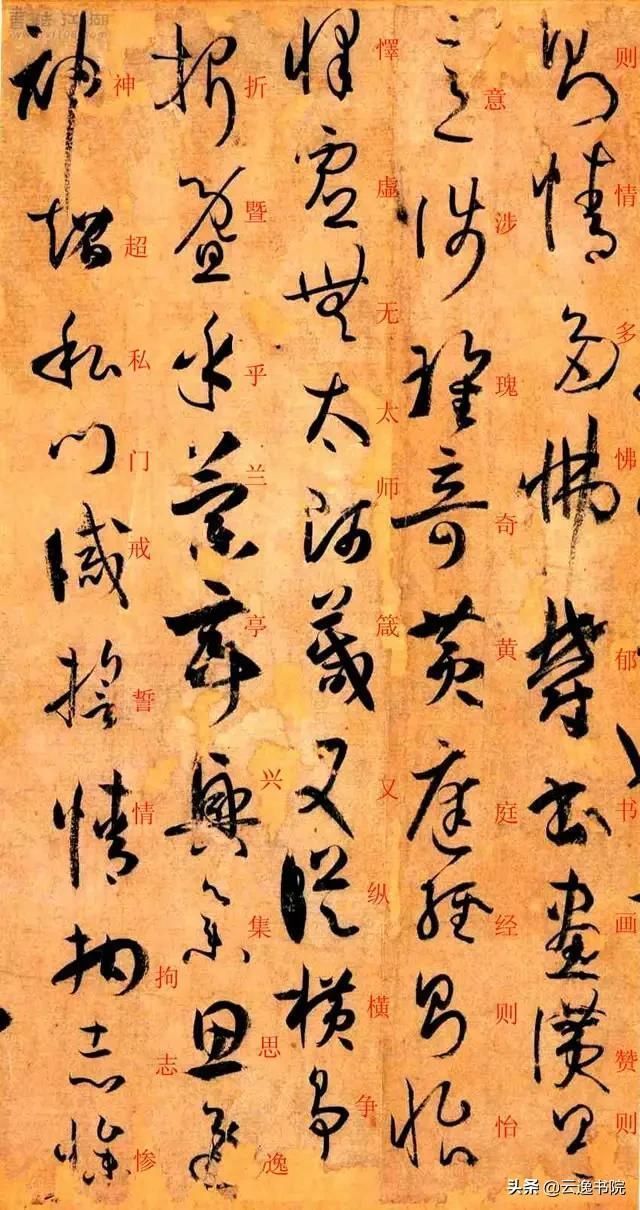 则情多怫郁书画赞则
意涉瑰奇黄庭经则怡
懌虚无太师箴又纵横争
折暨乎兰亭兴集思逸
神超私门戒誓情拘志惨
书法江湖
头条 @云逸书院